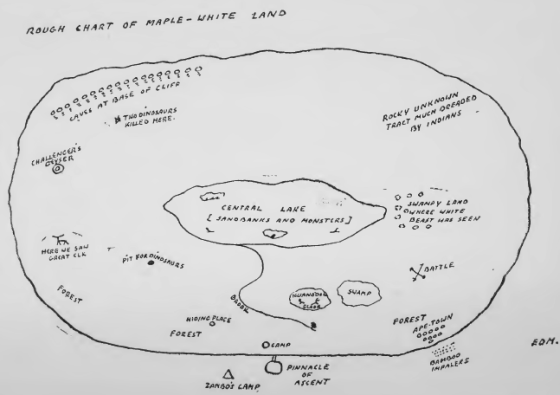 ROUGH CHART OF MAPLE-WHITE LAND
CAVES AT BASE OF CLIFF
TWO DINOSAURS
KILLED HERE.
ROCKY UNKNOWN
TRACT MUCH DREADED
BY INDIANS
CHALLENGER'S
GEYSER
CENTRAL LAKE
[SANDBANKS AND MONSTERS]
SWAMPY LAND
WHERE WHITE
BEAST WAS SEEN
HERE WE SAW
GREAT ELK
PIT FOR DINOSAURS
BATTLE
FOREST
BROOK
IGUANODON
GLADE
SWAMP
HIDING PLACE
FOREST
FOREST
APE-TOWN
CAMP
BAMBOO
IMPALERS
EDM.
PINNACLE
OF
ASCENT
ZAMBO'S CAMP